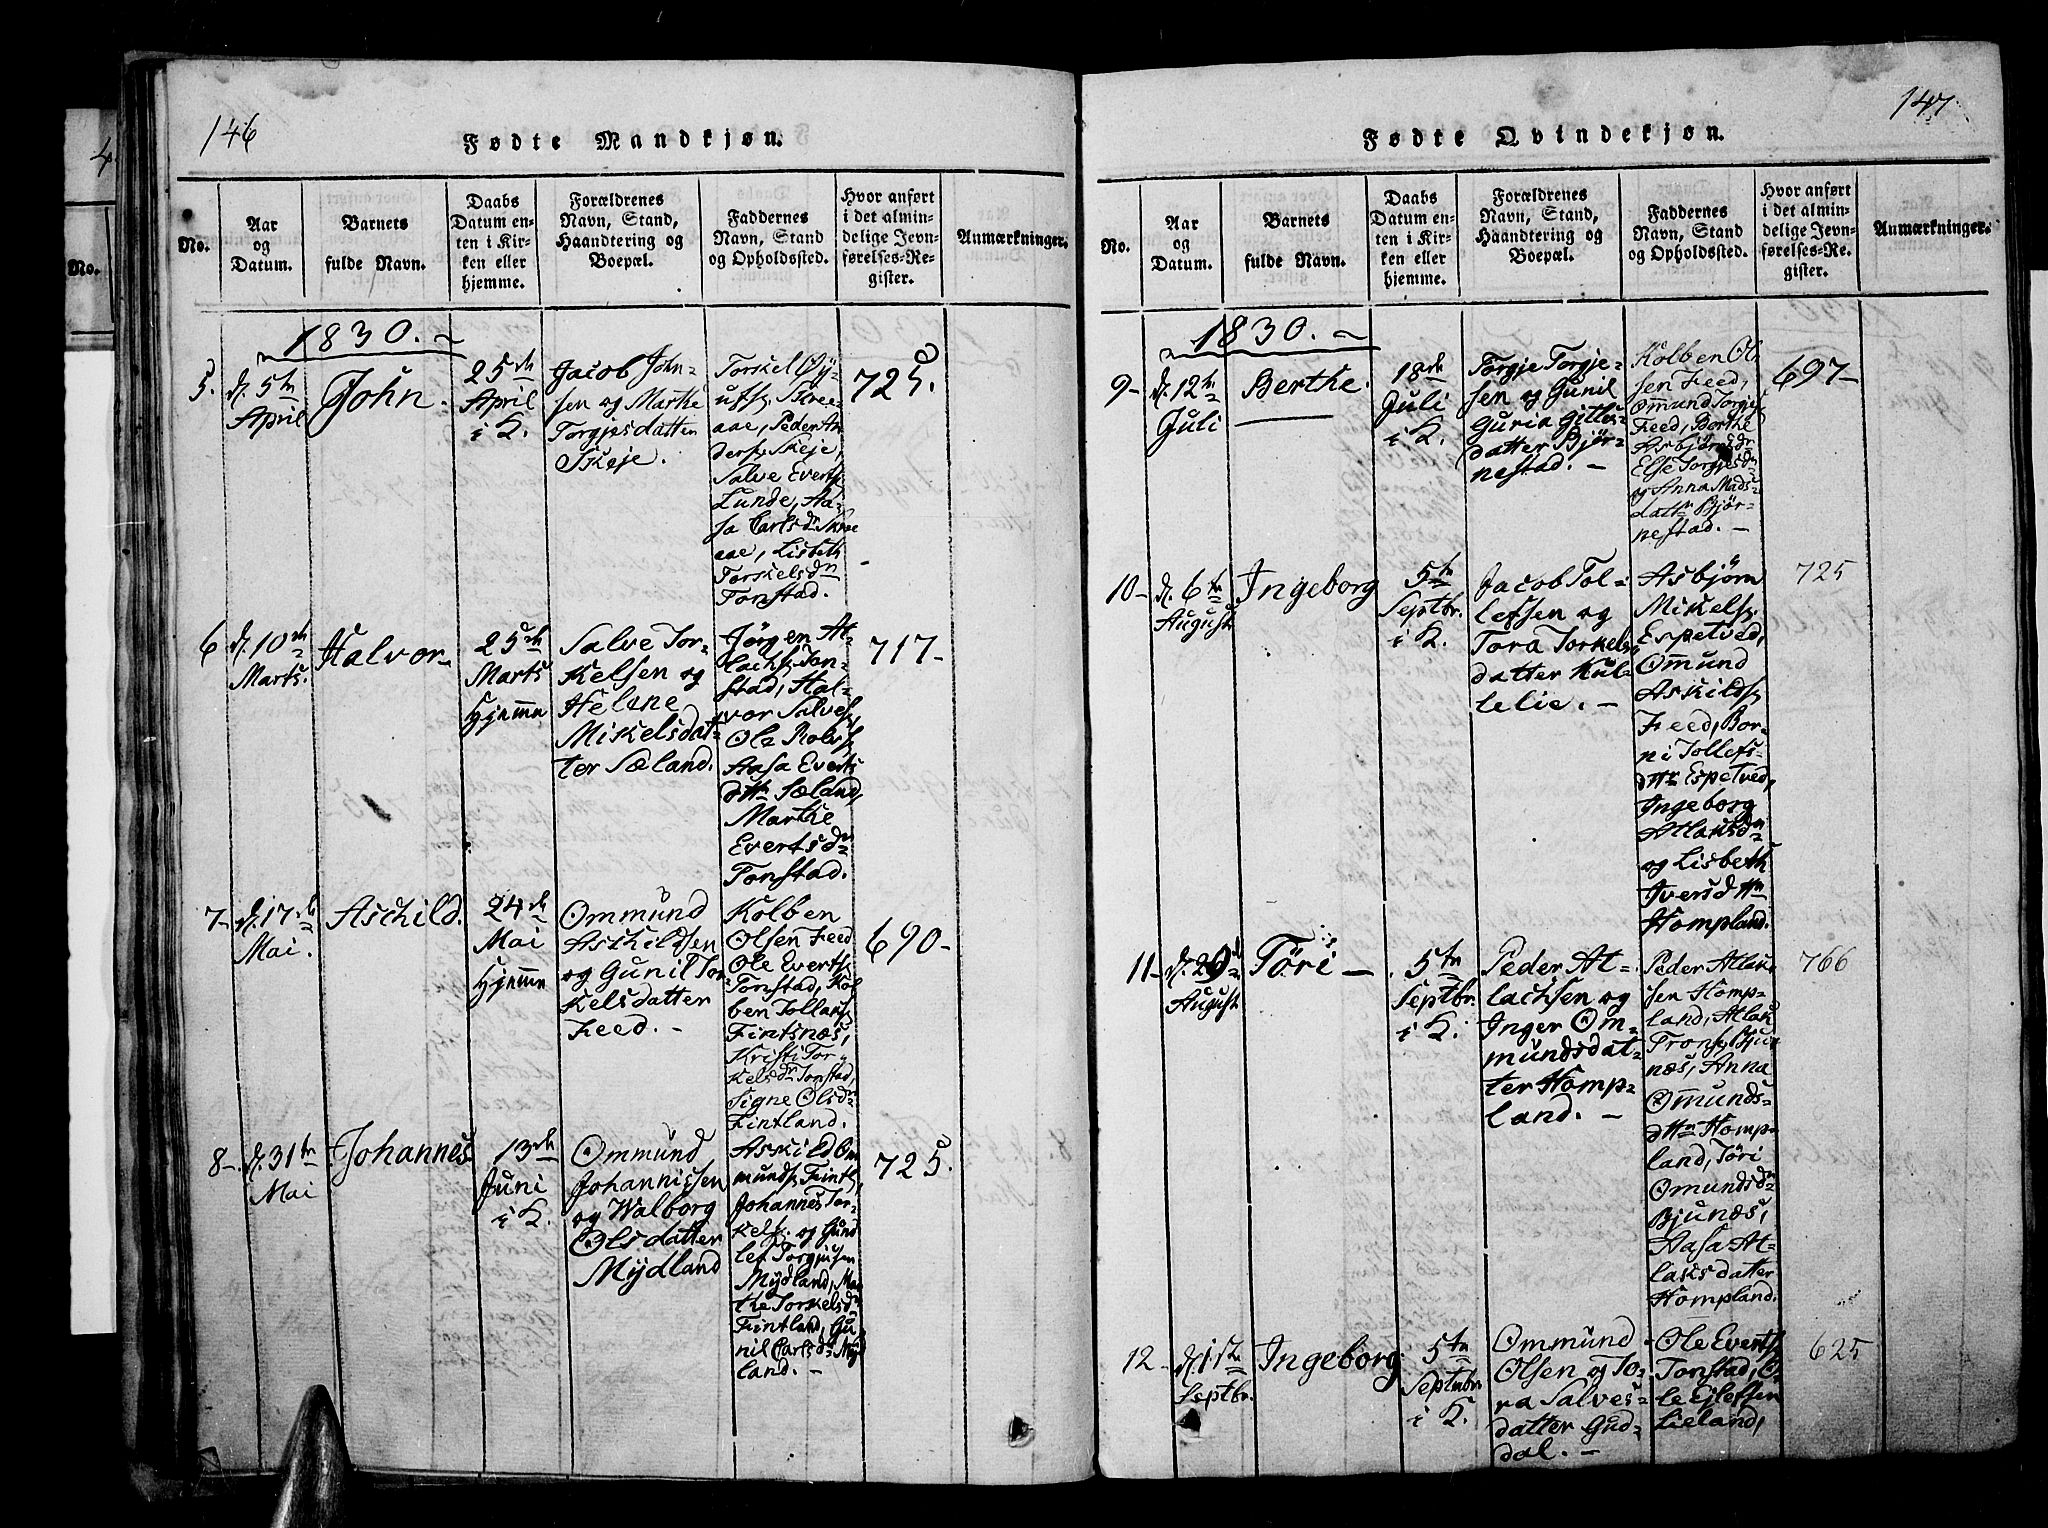 146
Fødte Mandkjøn.
No.
Aar
og
Datum.
Barnets
fulde Navn.
Daabs
Datum en-
ten i Kir-
ken eller
hjemme.
Forældrenes
Navn, Stand,
Haandtering og
Boepæl.
Faddernes
Navn, Stand
og Opholdssted.
Hvor anført
i det almin-
delige Jevn-
førelses-Re-
gister.
Anmærkninger.
1830.
5.
d. 5te
April
John.
25de
April
i K.
Jacob John-
sen og Marthe
Torgjesdatter
Skeje.
Torskel Øy-
ufs. Skree
aae, Peder An
ders. Skeje,
Salve Everts.
Lunde, Aa-
sa Carlsdr. Skree
aae, Lisbeth
Torskelsdr.
Tonstad.
725.
6
d. 10de
Marts.
Halvor.
25de
Marts
Hjemme
Salve Tor-
kelsen og
Helene
Mikelsdat-
ter Sæland.
Jørgen At-
lachs. Ton-
stad, Hal-
vor Salves.
Ole Robs.
Aasa Everts
dttr Sæland,
Marthe
Evertsdr.
Tonstad.
717-
7-
d. 17de
Mai.
Aschild.
24de
Mai
Hjemme
Ommund
Aschildsen
og Gunil Tor
kelsdatter
Feed. -
Kolben
Olsen Feed
Ole Everts.
Tonstad, Kol
ben Tollaks.
Fintsnæs,
Kristi Tor-
kelsdr Tonstad,
Signe Olsdr.
Fintland.
690-
8-
d. 31te
Mai
Johannes
13de
Juni
i K.
Ommund
Johannissen
og Walborg
Olsdatter
Mydland
Askild Om
munds. Fintl,
Johannes Tor-
kels. og Gund
lef Torgjusen
Mydland, Mar
the Torkelsdr
Fintland, Gu-
nil Carlsdr. Myd
land. -
725.
147
Fødte Qvindekjøn.
No.
Aar
og
Datum.
Barnets
fulde Navn.
Daabs
Datum en-
ten i Kir-
ken eller
hjemme.
Forældrenes
Navn, Stand,
Haandtering og
Boepæl.
Faddernes
Navn, Stand
og Opholdssted.
Hvor anført
i det almin-
delige Jevn-
førelses-Re-
gister.
Anmærkninger.
1830.
9-
d. 12te
Juli
Berthe.
18de
Juli
i K.
Torgje Torgje-
sen og Gunil
Guria Gitles-
datter Bjør-
nestad. -
Kolben Ol-
sen Feed,
Ommund Torgjes
Feed, Berthe
Asbjørnsdr
Else Torgjesdr
og Anna Mads-
dattr Bjør-
nestad. -
697-
10-
d. 6te
August
Ingeborg
5te
Septbr.
i K.
Jacob Tol-
lefsen og
Tora Torkels
datter Kul-
lelie. -
Asbjørn
Mikels.
Espetved,
Ommund
Askilds.
Feed, Bor-
ni Tollefs-
dttr Espetved,
Ingeborg
Atlaksdr
og Lisbeth
Iversdttr
Hompland.
725
11-
August
Töri -
5te
Septbr.
i K.
Peder At-
lachsen og
Inger Om-
mundsdat-
ter Homp-
land. -
Peder Atlak-
sen Homp-
land, Atlak
Trons. Bju
næs, Anna
Ommunds-
dttr Homp-
land, Töri
Omundsdr
Bjunæs,
Aasa At-
laksdatter
Hompland.
766
12-
d. 1ste
Septbr.
Ingeborg
5te
Septmbr
i K.
Ommund
Olsen og To-
ra Salves-
datter Gud-
dal. -
Ole Everts.
Tonstad, O-
le Ejlefsen
Lieland,
625